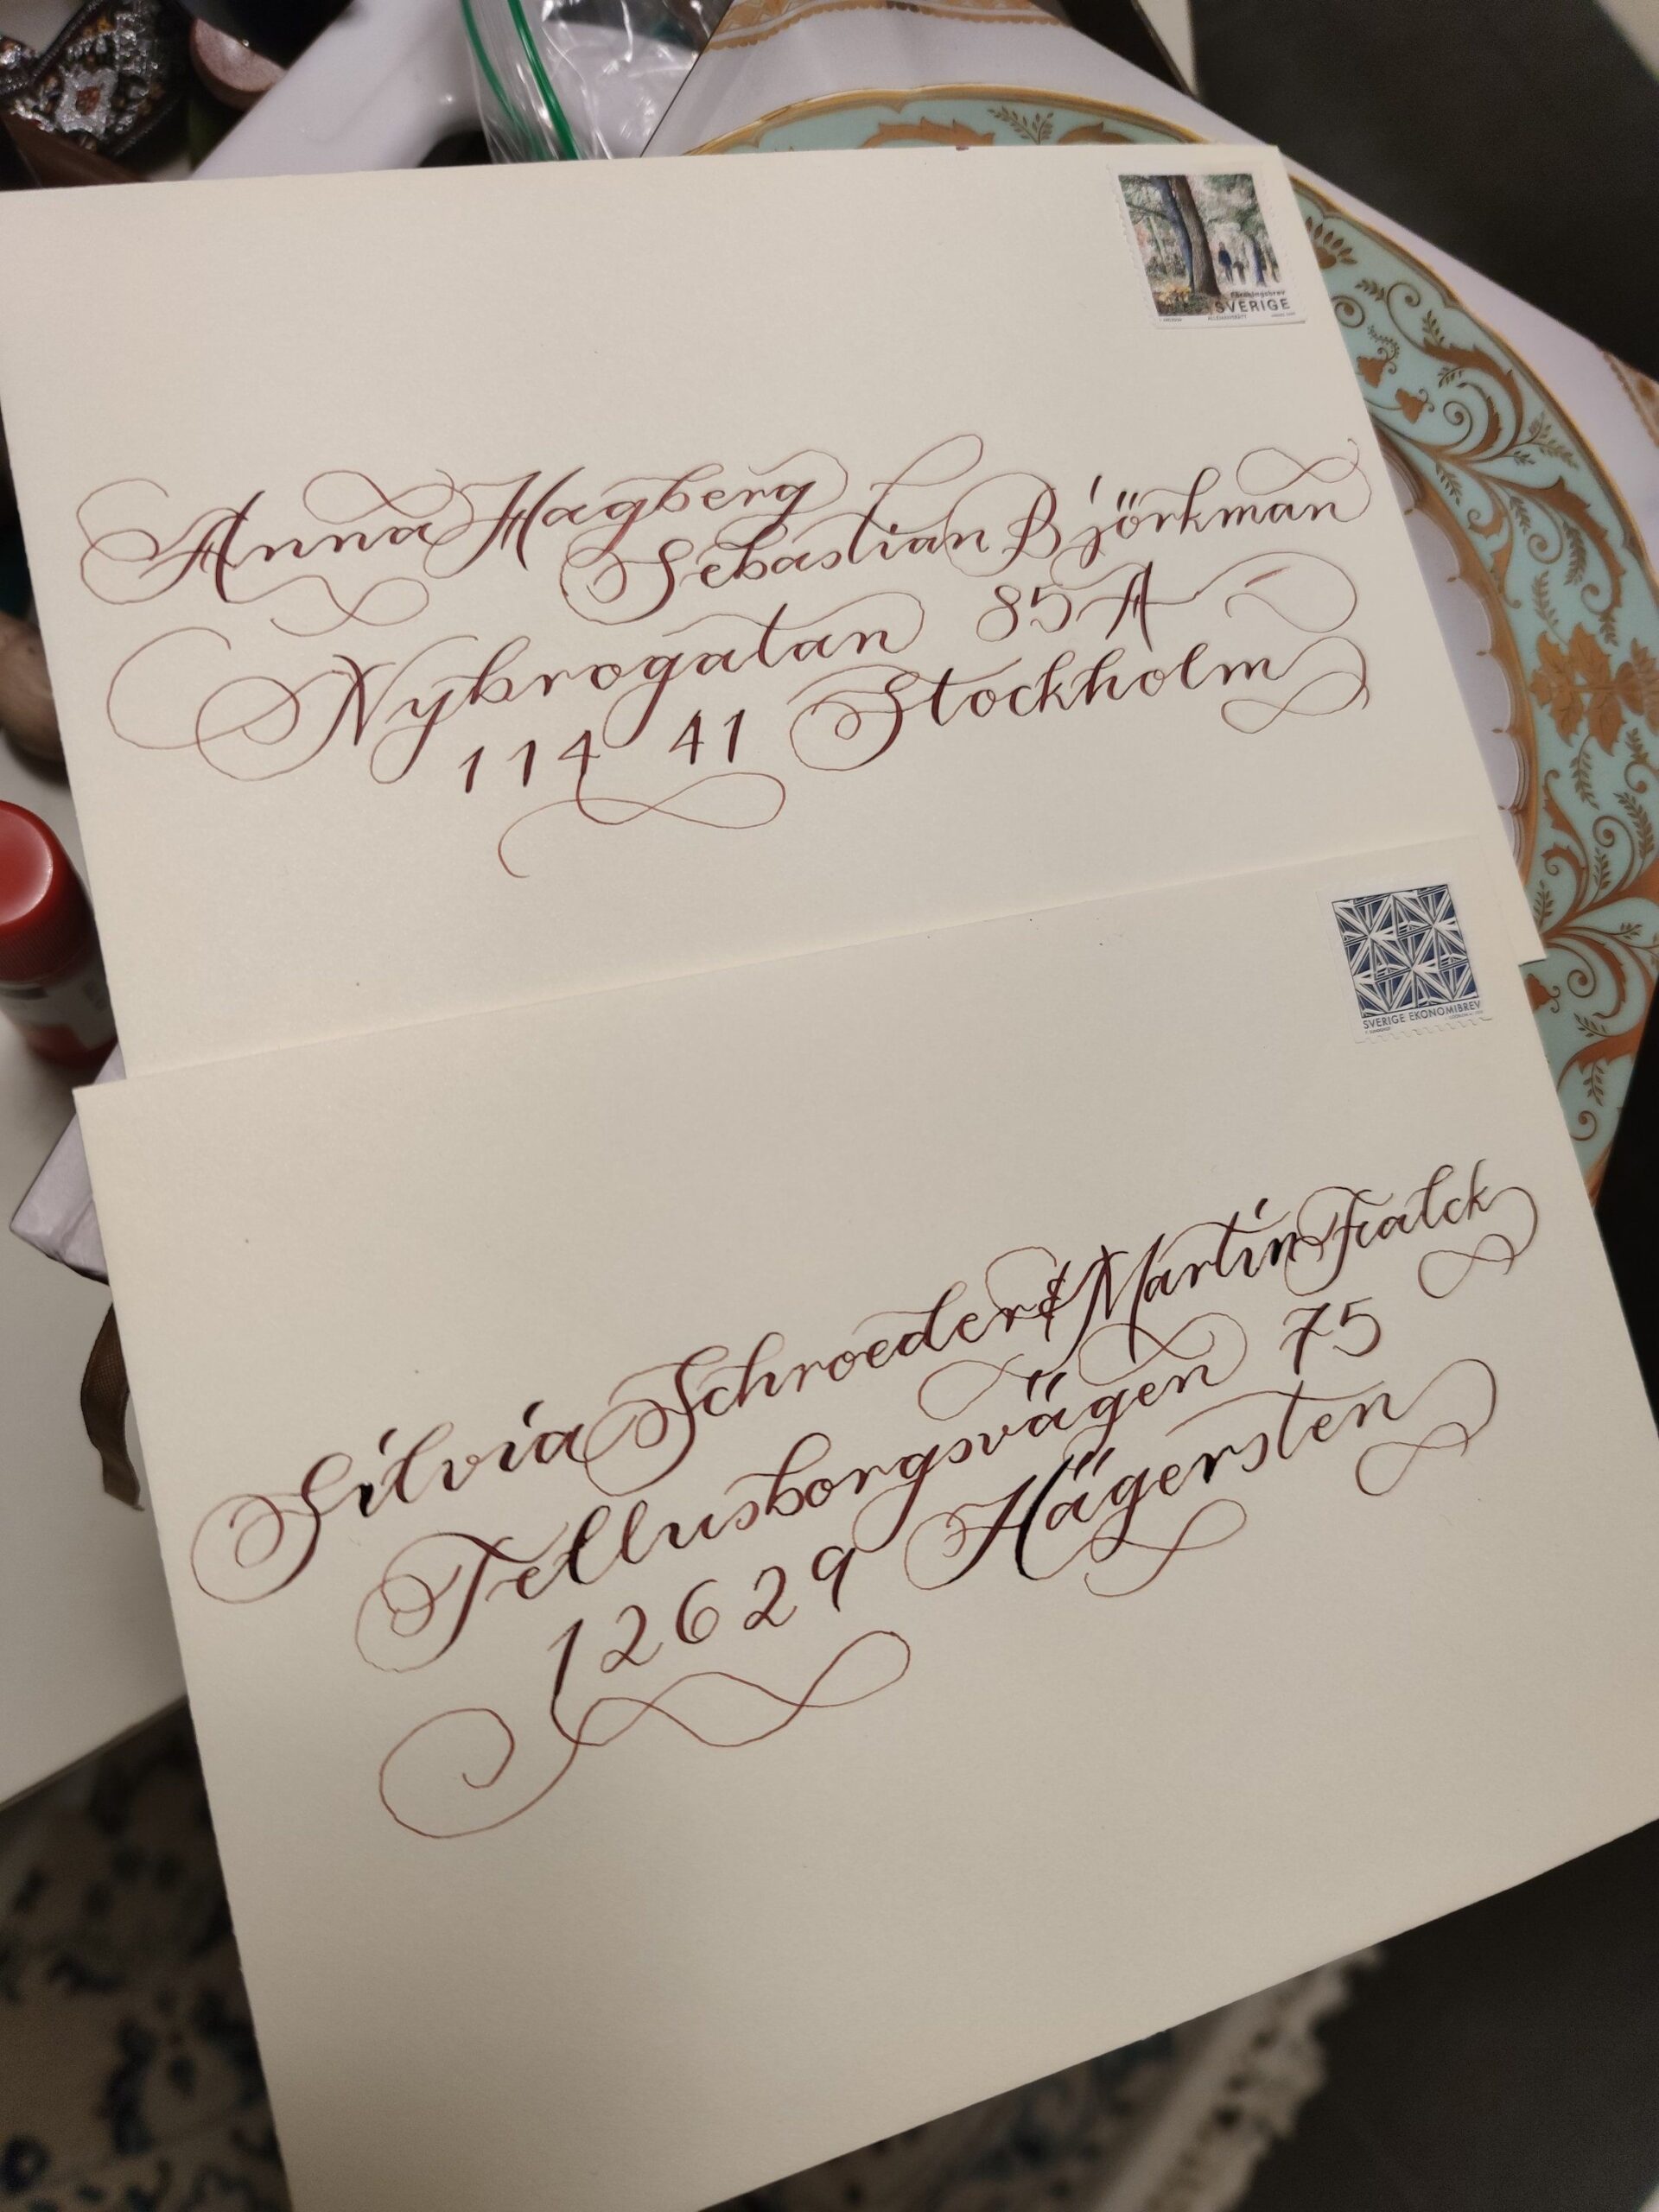 SVERIGE
Anna Hagberg
Sebastian Björkman
Nybrogatan 85 A
114 41 Stockholm
SVERIGE EKONOMIBREV
Silvia Schroeder & Martin Falck
Tellusborgsvägen 75
12629 Hägersten